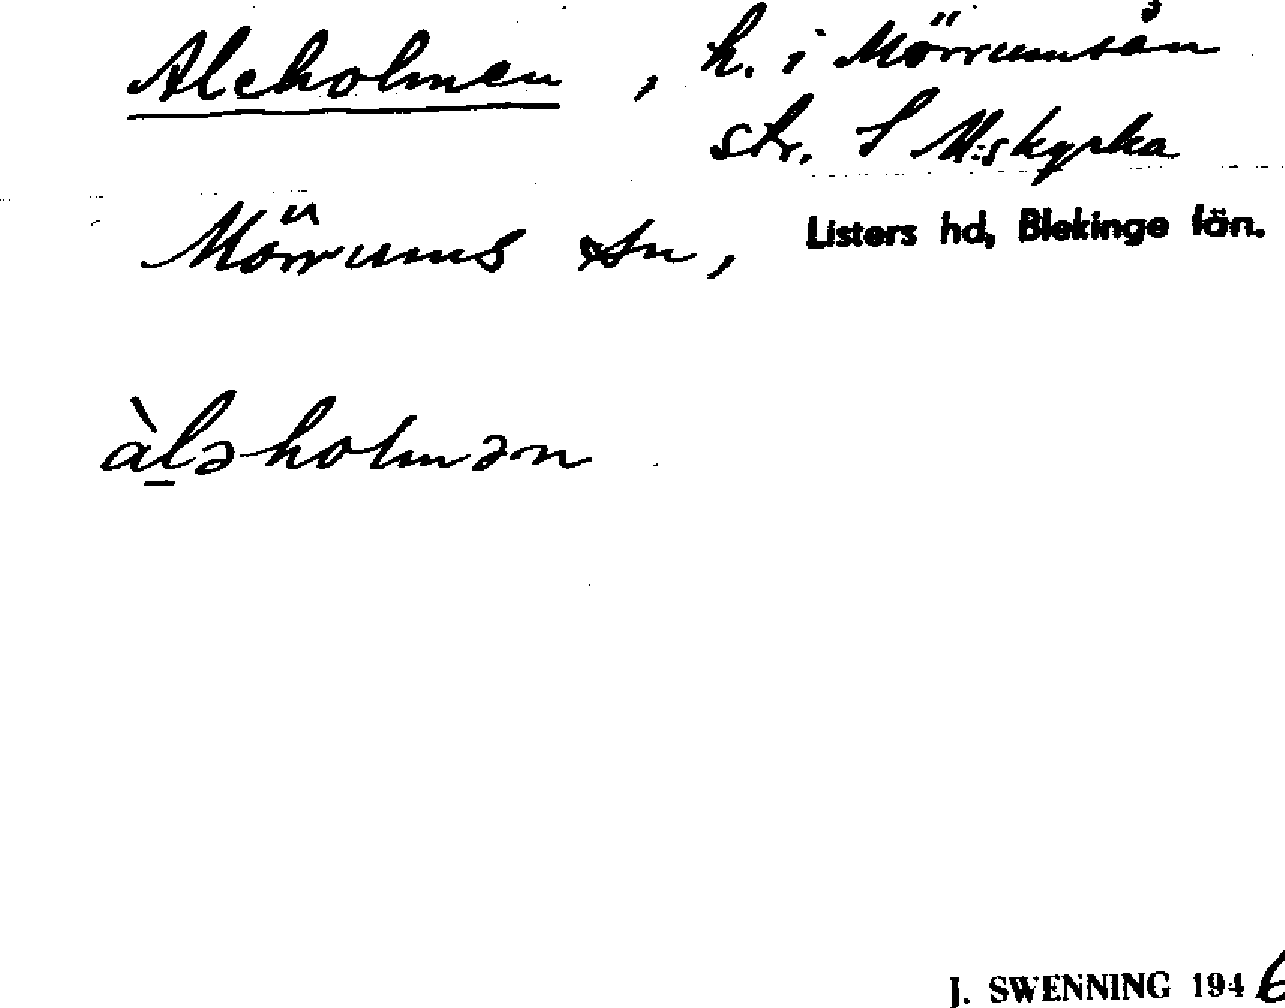 Aleholmen, h. i Mörrumsån
str. S M:s kyrka
Mörrums sn, Listers hd, Blekinge län.
àləholmən
J. SWENNING 1946